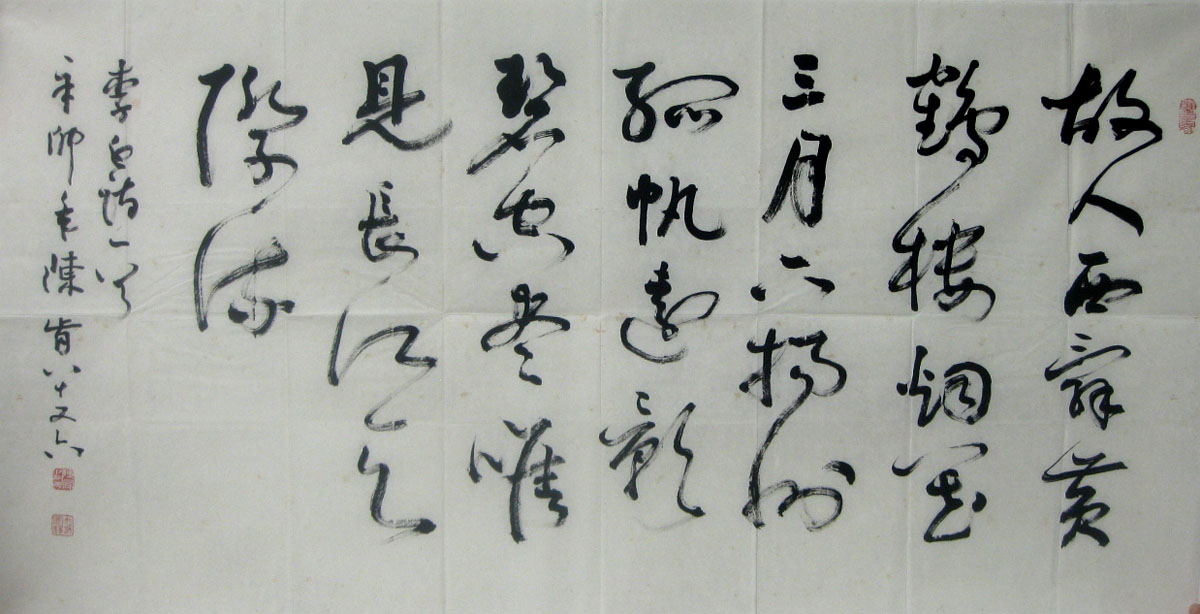 故人西辭黄
鶴樓烟花
三月下揚州
孤帆遠影
碧空尽唯
見長江天
際流
李白詩一首
辛卯年陳肯八十又六